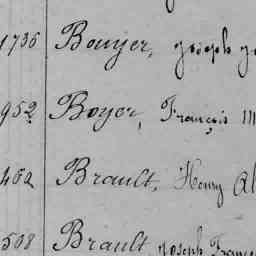 1736 Bouyer, joseph
952 Boyer, François M
462 Brault, Henry Al
508 Brault Joseph Franç